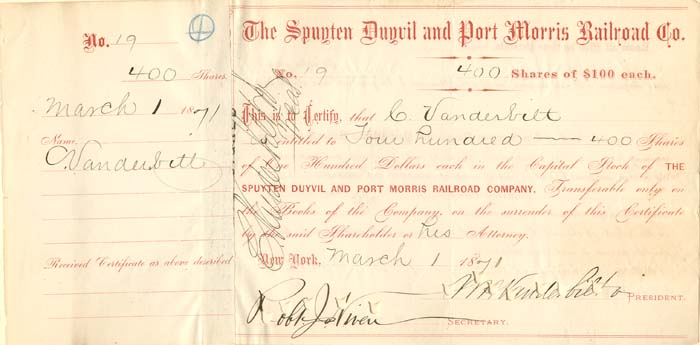 No. 19
400 Shares.
March 1 1871
Name,
C. Vanderbilt
Received Certificate as above described
The Spuyten Duyvil and Port Morris Railroad Co.
No. 19 400 Shares of $100 each.
This is to Certify, that C. Vanderbilt
is entitled to Four hundred — 400 Shares
of One Hundred Dollars each in the Capital Stock of THE
SPUYTEN DUYVIL AND PORT MORRIS RAILROAD COMPANY, Transferable only on
the Books of the Company, on the surrender of this Certificate
by the said Shareholder or his Attorney.
New York, March 1 1871
PRESIDENT.
SECRETARY.